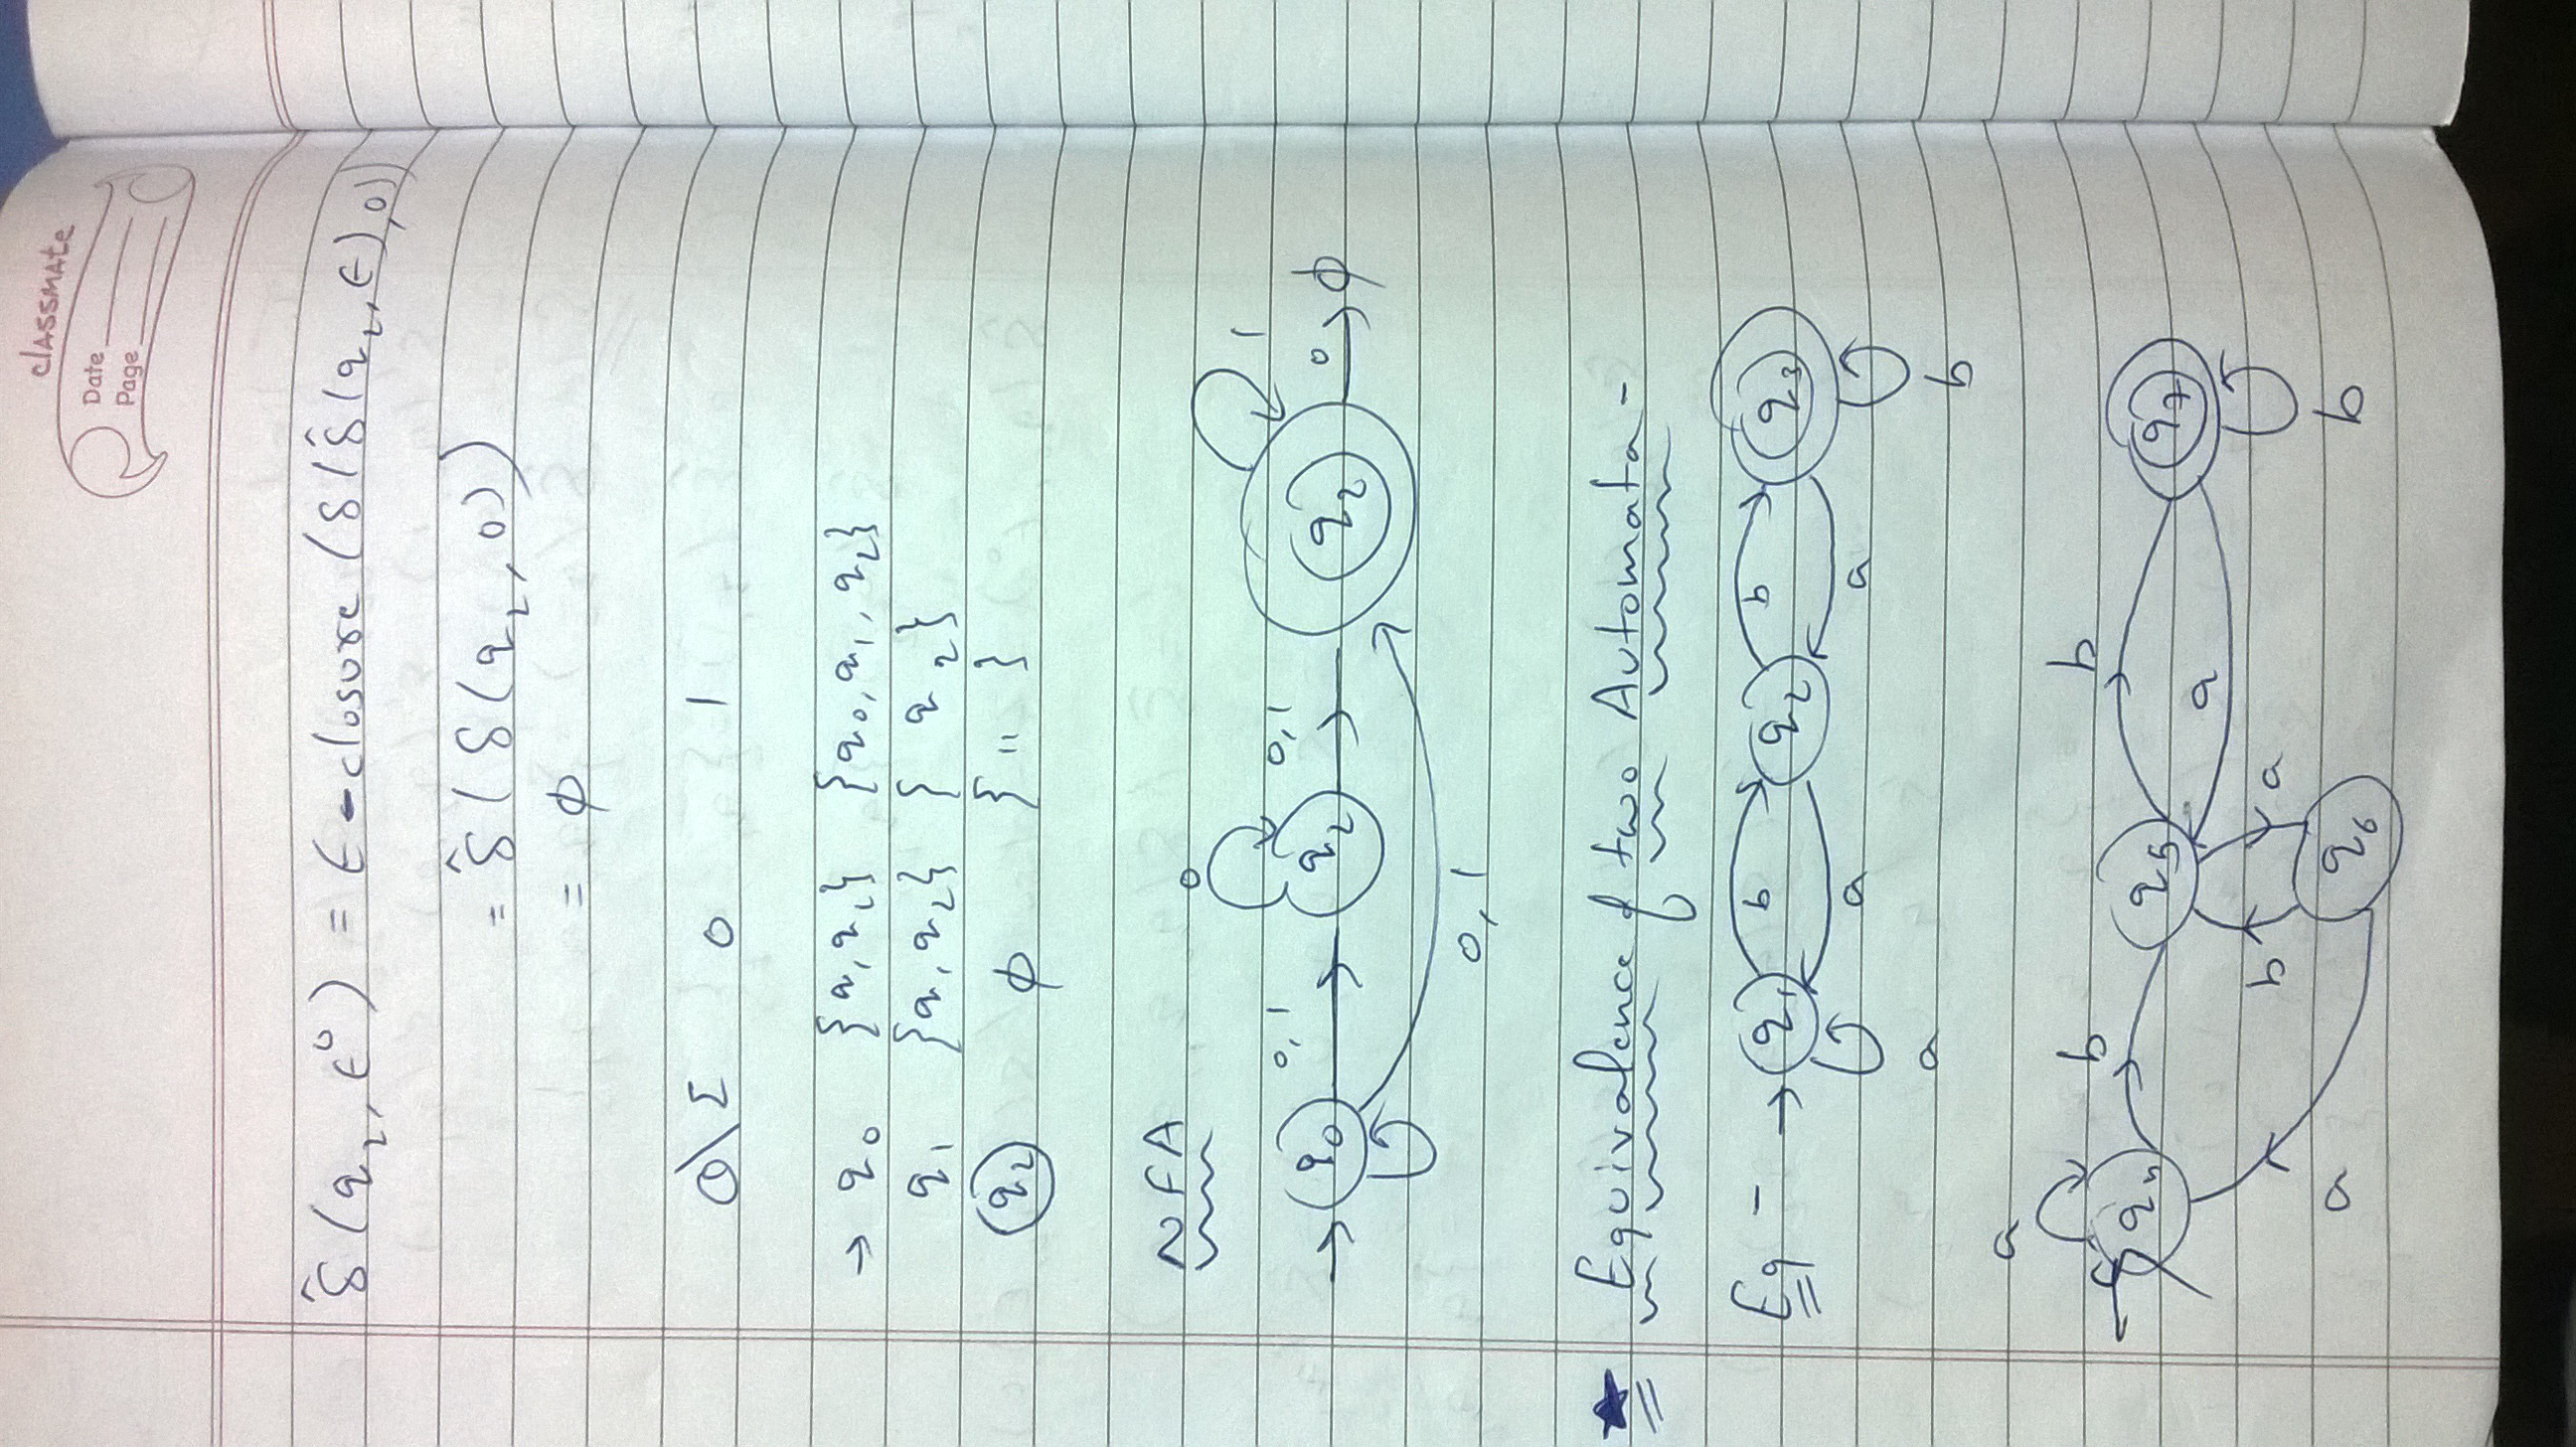 classmate
Date
Page
δ̂(q₂, ϵ0) = ϵ-closure(δ(δ̂(q₂, ϵ), 0))
= δ̂(δ(q₂, 0))
= ϕ
Q\Σ 0 1
→ q₀ {q₁, q₂} {q₀, q₁, q₂}
q₁ {q₁, q₂} {q₂}
q₂ ϕ {"}
NFA
0
0,1 0,1 1
→ q₀ q₂ q₂ 0 ϕ
0,1
★ Equivalence of two Automata -
Eg - → q₁ b q₂ b q₃
a a
a b
a
b b
q₄ q₅ q₇
a
b a
a q₆ b